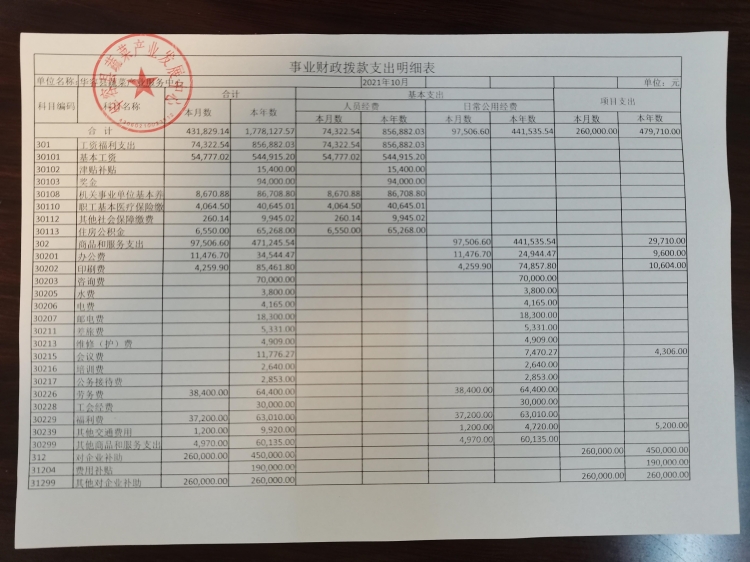 事业财政拨款支出明细表
单位名称：华容县蔬菜产业服务中心 2021年10月 单位： 元
科目编码 科目名称 合计 基本支出 项目支出
人员经费 日常公用经费
本月数 本年数 本月数 本年数 本月数 本年数 本月数 本年数
合 计 431,829.14 1,778,127.57 74,322.54 856,882.03 97,506.60 441,535.54 260,000.00 479,710.00
301 工资福利支出 74,322.54 856,882.03 74,322.54 856,882.03
30101 基本工资 54,777.02 544,915.20 54,777.02 544,915.20
30102 津贴补贴 15,400.00 15,400.00
30103 奖金 94,000.00 94,000.00
30108 机关事业单位基本养 8,670.88 86,708.80 8,670.88 86,708.80
30110 职工基本医疗保险缴 4,064.50 40,645.01 4,064.50 40,645.01
30112 其他社会保障缴费 260.14 9,945.02 260.14 9,945.02
30113 住房公积金 6,550.00 65,268.00 6,550.00 65,268.00
302 商品和服务支出 97,506.60 471,245.54 97,506.60 441,535.54 29,710.00
30201 办公费 11,476.70 34,544.47 11,476.70 24,944.47 9,600.00
30202 印刷费 4,259.90 85,461.80 4,259.90 74,857.80 10,604.00
30203 咨询费 70,000.00 70,000.00
30205 水费 3,800.00 3,800.00
30206 电费 4,165.00 4,165.00
30207 邮电费 18,300.00 18,300.00
30211 差旅费 5,331.00 5,331.00
30213 维修（护）费 4,909.00 4,909.00
30215 会议费 11,776.27 7,470.27 4,306.00
30216 培训费 2,640.00 2,640.00
30217 公务接待费 2,853.00 2,853.00
30226 劳务费 38,400.00 64,400.00 38,400.00 64,400.00
30228 工会经费 30,000.00 30,000.00
30229 福利费 37,200.00 63,010.00 37,200.00 63,010.00
30239 其他交通费用 1,200.00 9,920.00 1,200.00 4,720.00 5,200.00
30299 其他商品和服务支出 4,970.00 60,135.00 4,970.00 60,135.00
312 对企业补助 260,000.00 450,000.00 260,000.00 450,000.00
31204 费用补贴 190,000.00 190,000.00
31299 其他对企业补助 260,000.00 260,000.00 260,000.00 260,000.00